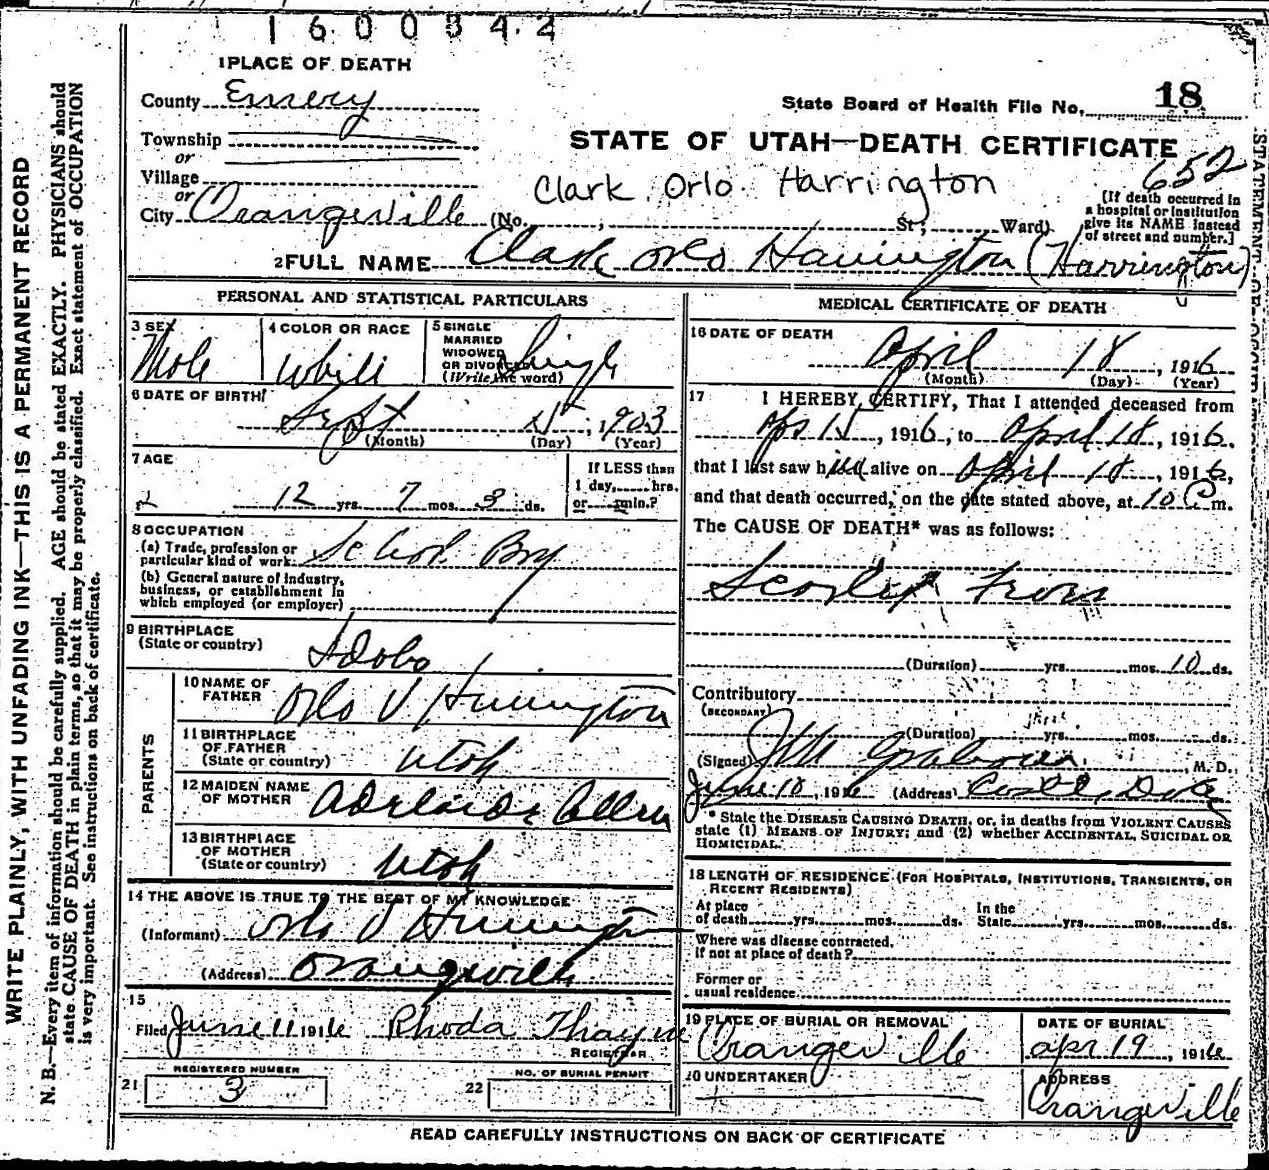 1600342
1 PLACE OF DEATH
County Emery
State Board of Health File No. 18
Township
or
Village
or
City Orangeville (No. , St; Ward)
STATE OF UTAH—DEATH CERTIFICATE
652
Clark Orlo Harrington
[If death occurred in
a hospital or institution
give its NAME instead
of street and number.]
2 FULL NAME Clark Orlo Harrington (Harrington)
PERSONAL AND STATISTICAL PARTICULARS
3 SEX Male
4 COLOR OR RACE White
5 SINGLE
MARRIED
WIDOWED
OR DIVORCED
(Write the word) Single
6 DATE OF BIRTH
Sept 15, 1903
(Month) (Day) (Year)
7 AGE
12 yrs. 7 mos. 3 ds.
If LESS than
1 day, hrs.
or min.?
8 OCCUPATION
(a) Trade, profession or
particular kind of work School Boy
(b) General nature of industry,
business, or establishment in
which employed (or employer)
9 BIRTHPLACE
(State or country) Idaho
PARENTS
10 NAME OF
FATHER Orlo V Harrington
11 BIRTHPLACE
OF FATHER
(State or country) Utah
12 MAIDEN NAME
OF MOTHER Adelaide Allen
13 BIRTHPLACE
OF MOTHER
(State or country) Utah
14 THE ABOVE IS TRUE TO THE BEST OF MY KNOWLEDGE
(Informant) Orlo V Harrington
(Address) Orangeville
15
Filed June 11 1916 Rhoda Thayne
REGISTRAR
REGISTERED NUMBER
21 3
NO. OF BURIAL PERMIT
22
MEDICAL CERTIFICATE OF DEATH
16 DATE OF DEATH
April 18, 1916
(Month) (Day) (Year)
17 I HEREBY CERTIFY, That I attended deceased from
Apr 15, 1916, to April 18, 1916.
that I last saw him alive on April 18, 1916,
and that death occurred, on the date stated above, at 10 P m.
The CAUSE OF DEATH* was as follows:
Scarlet Fever
(Duration) yrs. mos. 10 ds.
Contributory
(SECONDARY)
(Duration) yrs. mos. ds.
(Signed) M. D.
June 10, 1916 (Address) Castle Dale
* State the DISEASE CAUSING DEATH, or, in deaths from VIOLENT CAUSES
state (1) MEANS OF INJURY; and (2) whether ACCIDENTAL, SUICIDAL OR
HOMICIDAL.
18 LENGTH OF RESIDENCE (FOR HOSPITALS, INSTITUTIONS, TRANSIENTS, OR
RECENT RESIDENTS)
At place
of death yrs. mos. ds.
In the
State yrs. mos. ds.
Where was disease contracted,
if not at place of death?
Former or
usual residence
19 PLACE OF BURIAL OR REMOVAL
Orangeville
DATE OF BURIAL
Apr 19, 1916
20 UNDERTAKER
ADDRESS
Orangeville
READ CAREFULLY INSTRUCTIONS ON BACK OF CERTIFICATE
WRITE PLAINLY, WITH UNFADING INK—THIS IS A PERMANENT RECORD
N. B.—Every item of information should be carefully supplied. AGE should be stated EXACTLY. PHYSICIANS should
state CAUSE OF DEATH in plain terms, so that it may be properly classified. Exact statement of OCCUPATION
is very important. See instructions on back of certificate.